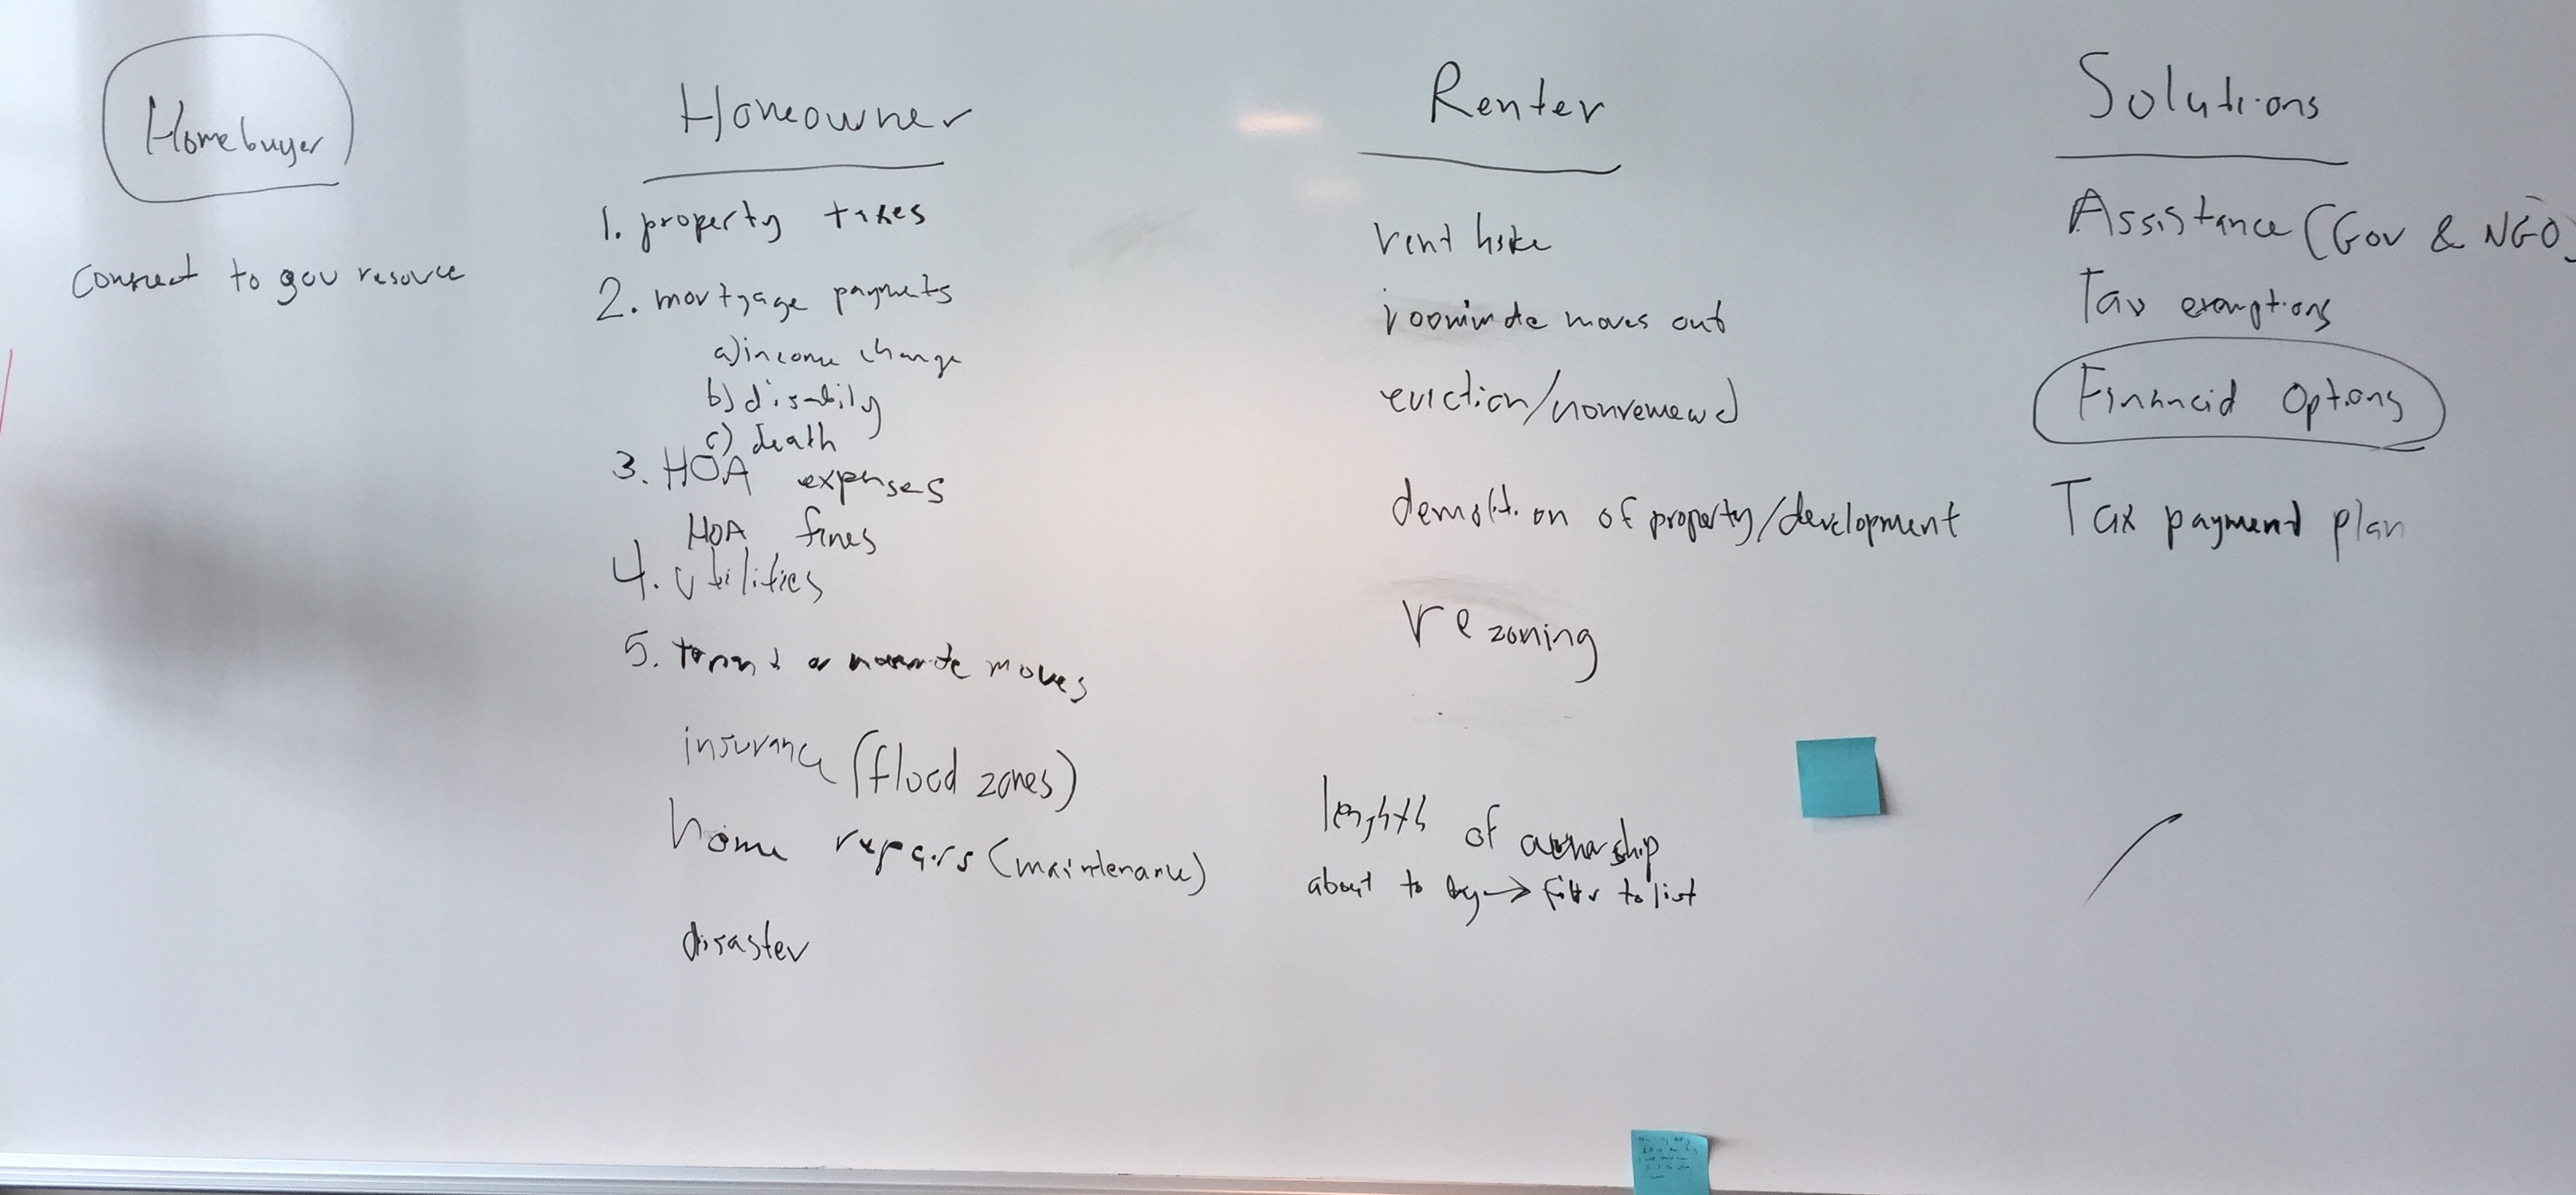 Homebuyer
Connect to gov resource
Homeowner
1. property taxes
2. mortgage payments
a) income change
b) disability
c) death
3. HOA expenses
HOA fines
4. Utilities
5. tenant or moves
insurance (flood zones)
home repairs (maintenance)
disaster
Renter
rent hike
roommate moves out
eviction/nonrenewal
demolition of property/development
rezoning
lenghth of ownership
about to buy → filter to list
Solutions
Assistance (Gov & NGO)
Tax exemptions
Financial Options
Tax payment plan